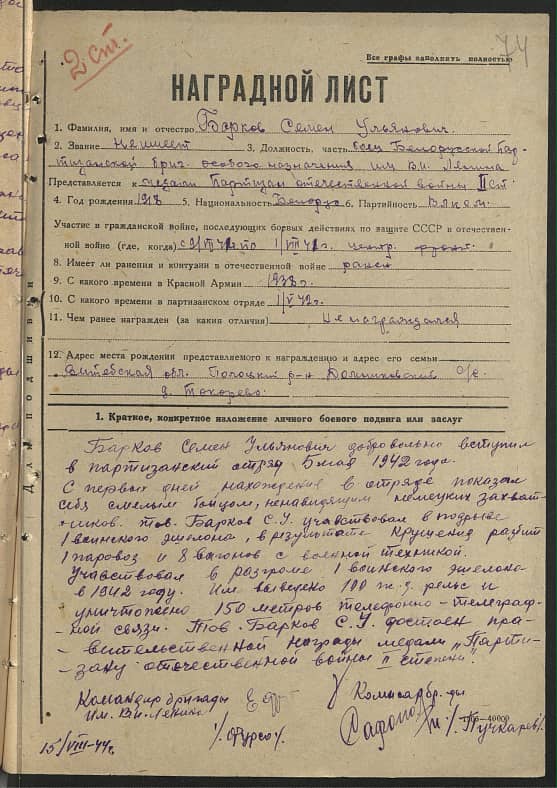 2 ст.
74
Все графы заполнить полностью
НАГРАДНОЙ ЛИСТ
1. Фамилия, имя и отчество Барков Семен Ульянович.
2. Звание не имеет 3. Должность, часть боец Белорусской Пар-
тизанской бриг. особого назначения им. В.И. Ленина
Представляется к медали Партизан отечественной войны II ст.
4. Год рождения 1918 5. Национальность Белорус 6. Партийность В.Л.К.С.М.
Участие в гражданской войне, последующих боевых действиях по защите СССР и отечествен-
ной войне (где, когда) по 1/VIII 42г. центр. фронт.
8. Имеет ли ранения и контузии в отечественной войне ранен
9. С какого времени в Красной Армии 1938г.
10. С какого времени в партизанском отряде 1/V 42г.
11. Чем ранее награжден (за какия отличия) Не награждался
12. Адрес места рождения представляемого к награждению и адрес его семьи
Витебская обл. Полоцкий р-н с/с
д. Токарево
Для подшивки
1. Краткое, конкретное изложение личного боевого подвига или заслуг
Барков Семен Ульянович добровольно вступил
в партизанский отряд 5 мая 1942 года.
С первых дней нахождения в отряде показал
себя смелым бойцом, ненавидящим немецких захват-
чиков. тов. Барков С.У. участвовал в подрыве
1 воинского эшелона, в результате крушения разбит
1 паровоз и 8 вагонов с военной техникой.
Участвовал в разгроме 1 воинского эшелона
в 1942 году. Им выведено 100 ж.д. рельс и
уничтожено 150 метров телефонно-телеграф-
-ной связи. Тов. Барков С.У. достоин пра-
-вительственной награды медали „Парти-
зану отечественной войны II степени".
Командир бригады
им. В.И. Ленина
/Фурсо/
Комисар бр-ды
/Пучкарев/
15/VIII-44г.